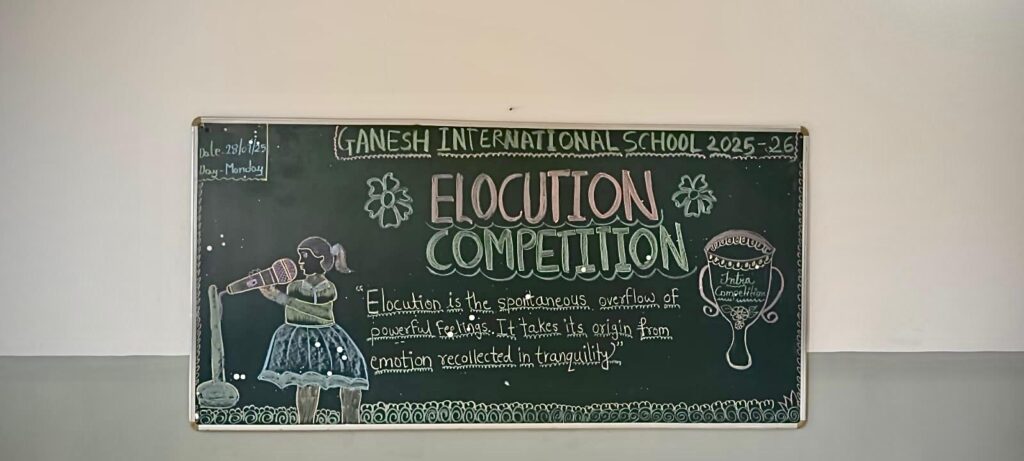 Date - 28/07/25
Day - Monday
GANESH INTERNATIONAL SCHOOL 2025-26
ELOCUTION
COMPETITION
"Elocution is the spontaneous overflow of
powerful feelings. It takes its origin from
emotion recollected in tranquility"
Intra
Competition